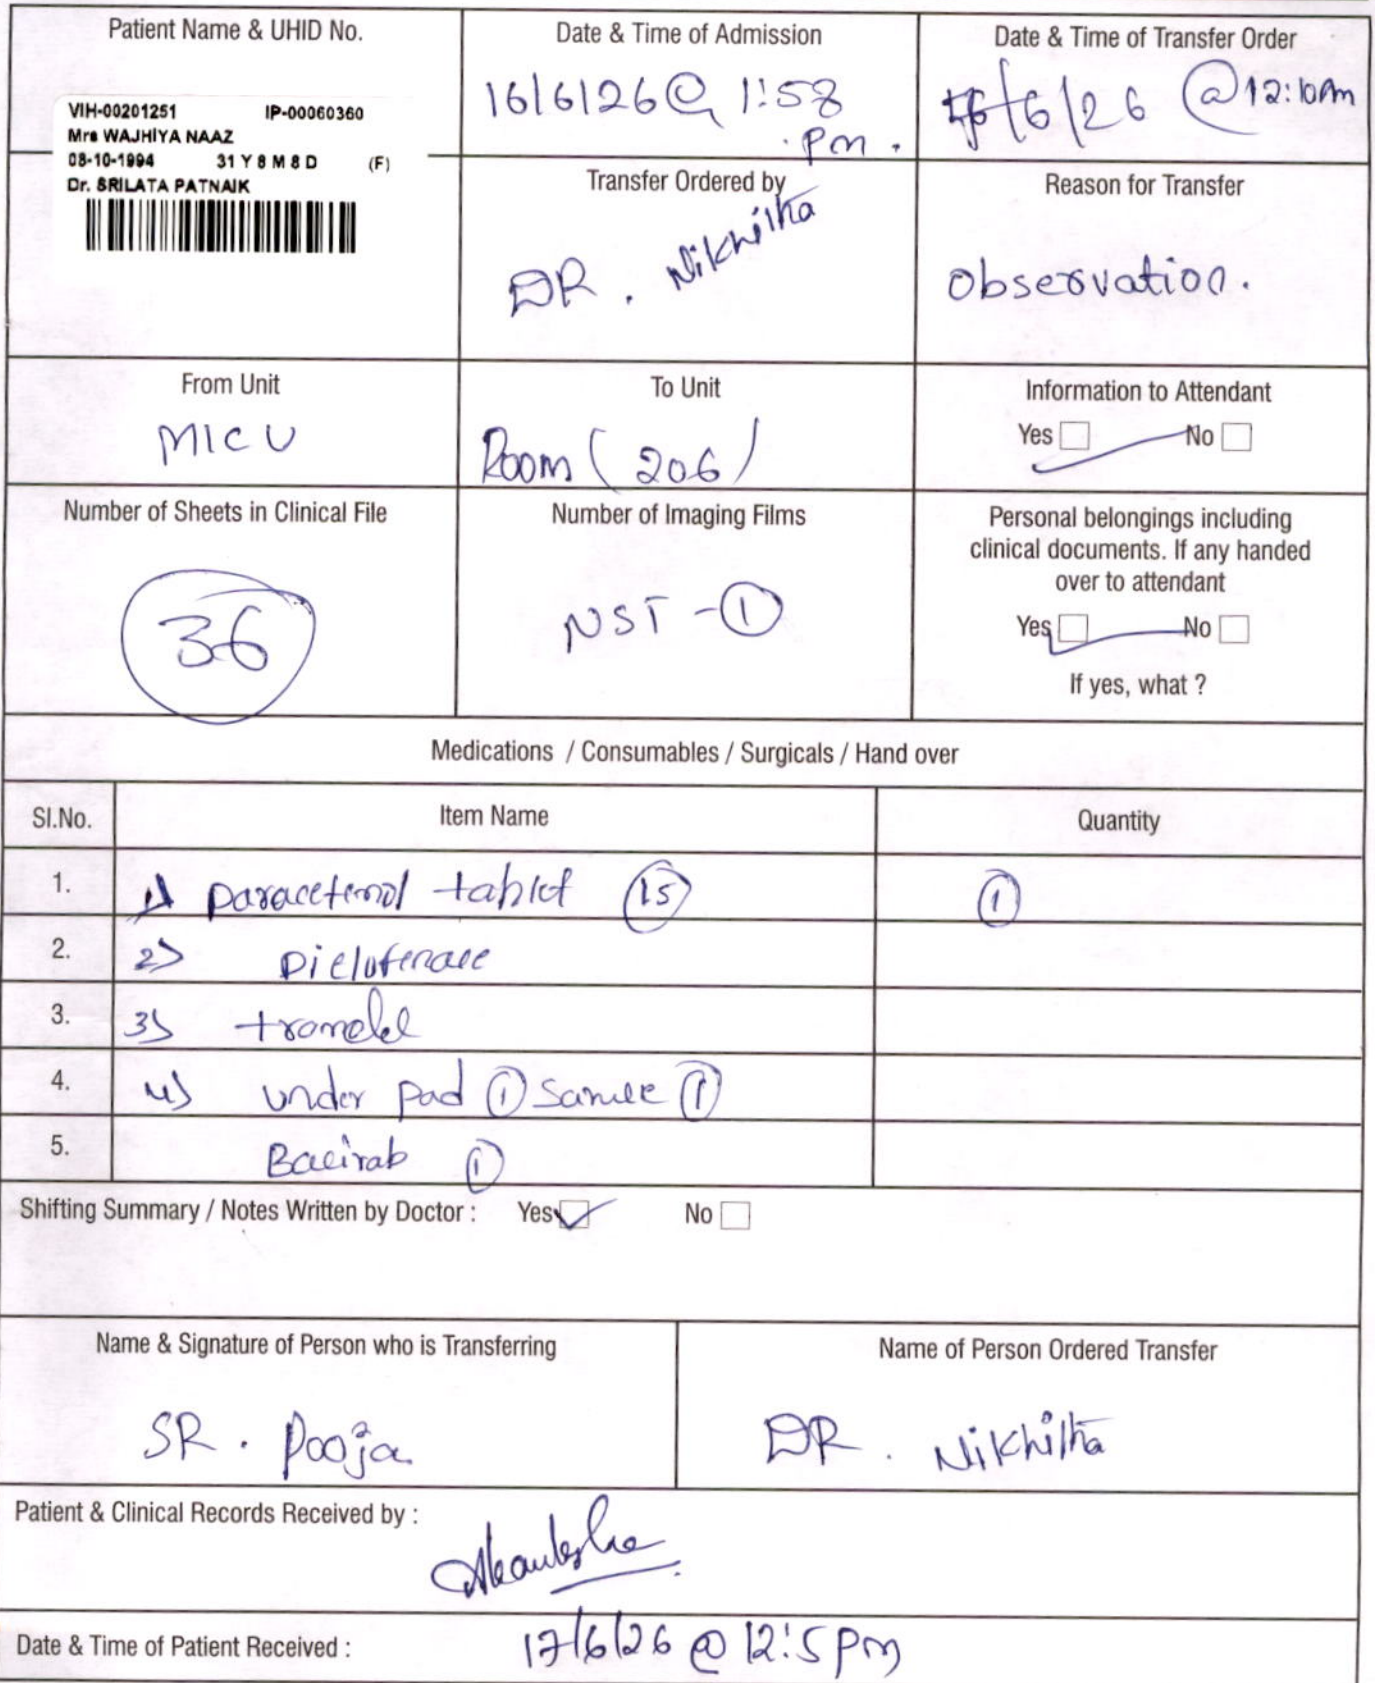 Patient Name & UHID No.
Date & Time of Admission
Date & Time of Transfer Order
VIH-00201251 IP-00060360
Mrs WAJHIYA NAAZ
08-10-1994 31 Y 8 M 8 D (F)
Dr. SRILATA PATNAIK
16/6/26 @ 1:58
pm.
/6/26 @ 12:10pm
Transfer Ordered by
DR. Nikhitha
Reason for Transfer
Observation.
From Unit
MICU
To Unit
Room (206)
Information to Attendant
Yes No
Number of Sheets in Clinical File
36
Number of Imaging Films
NST - 1
Personal belongings including
clinical documents. If any handed
over to attendant
Yes No
If yes, what ?
Medications / Consumables / Surgicals / Hand over
Sl.No. Item Name Quantity
1. 1) paracetemol tablet 15 1
2. 2) Diclofenac
3. 3) 
4. 4) under pad 1 1
5. 1
Shifting Summary / Notes Written by Doctor : Yes No
Name & Signature of Person who is Transferring
SR. Pooja
Name of Person Ordered Transfer
DR. Nikhitha
Patient & Clinical Records Received by :
Date & Time of Patient Received : 17/6/26 @ 12:5pm